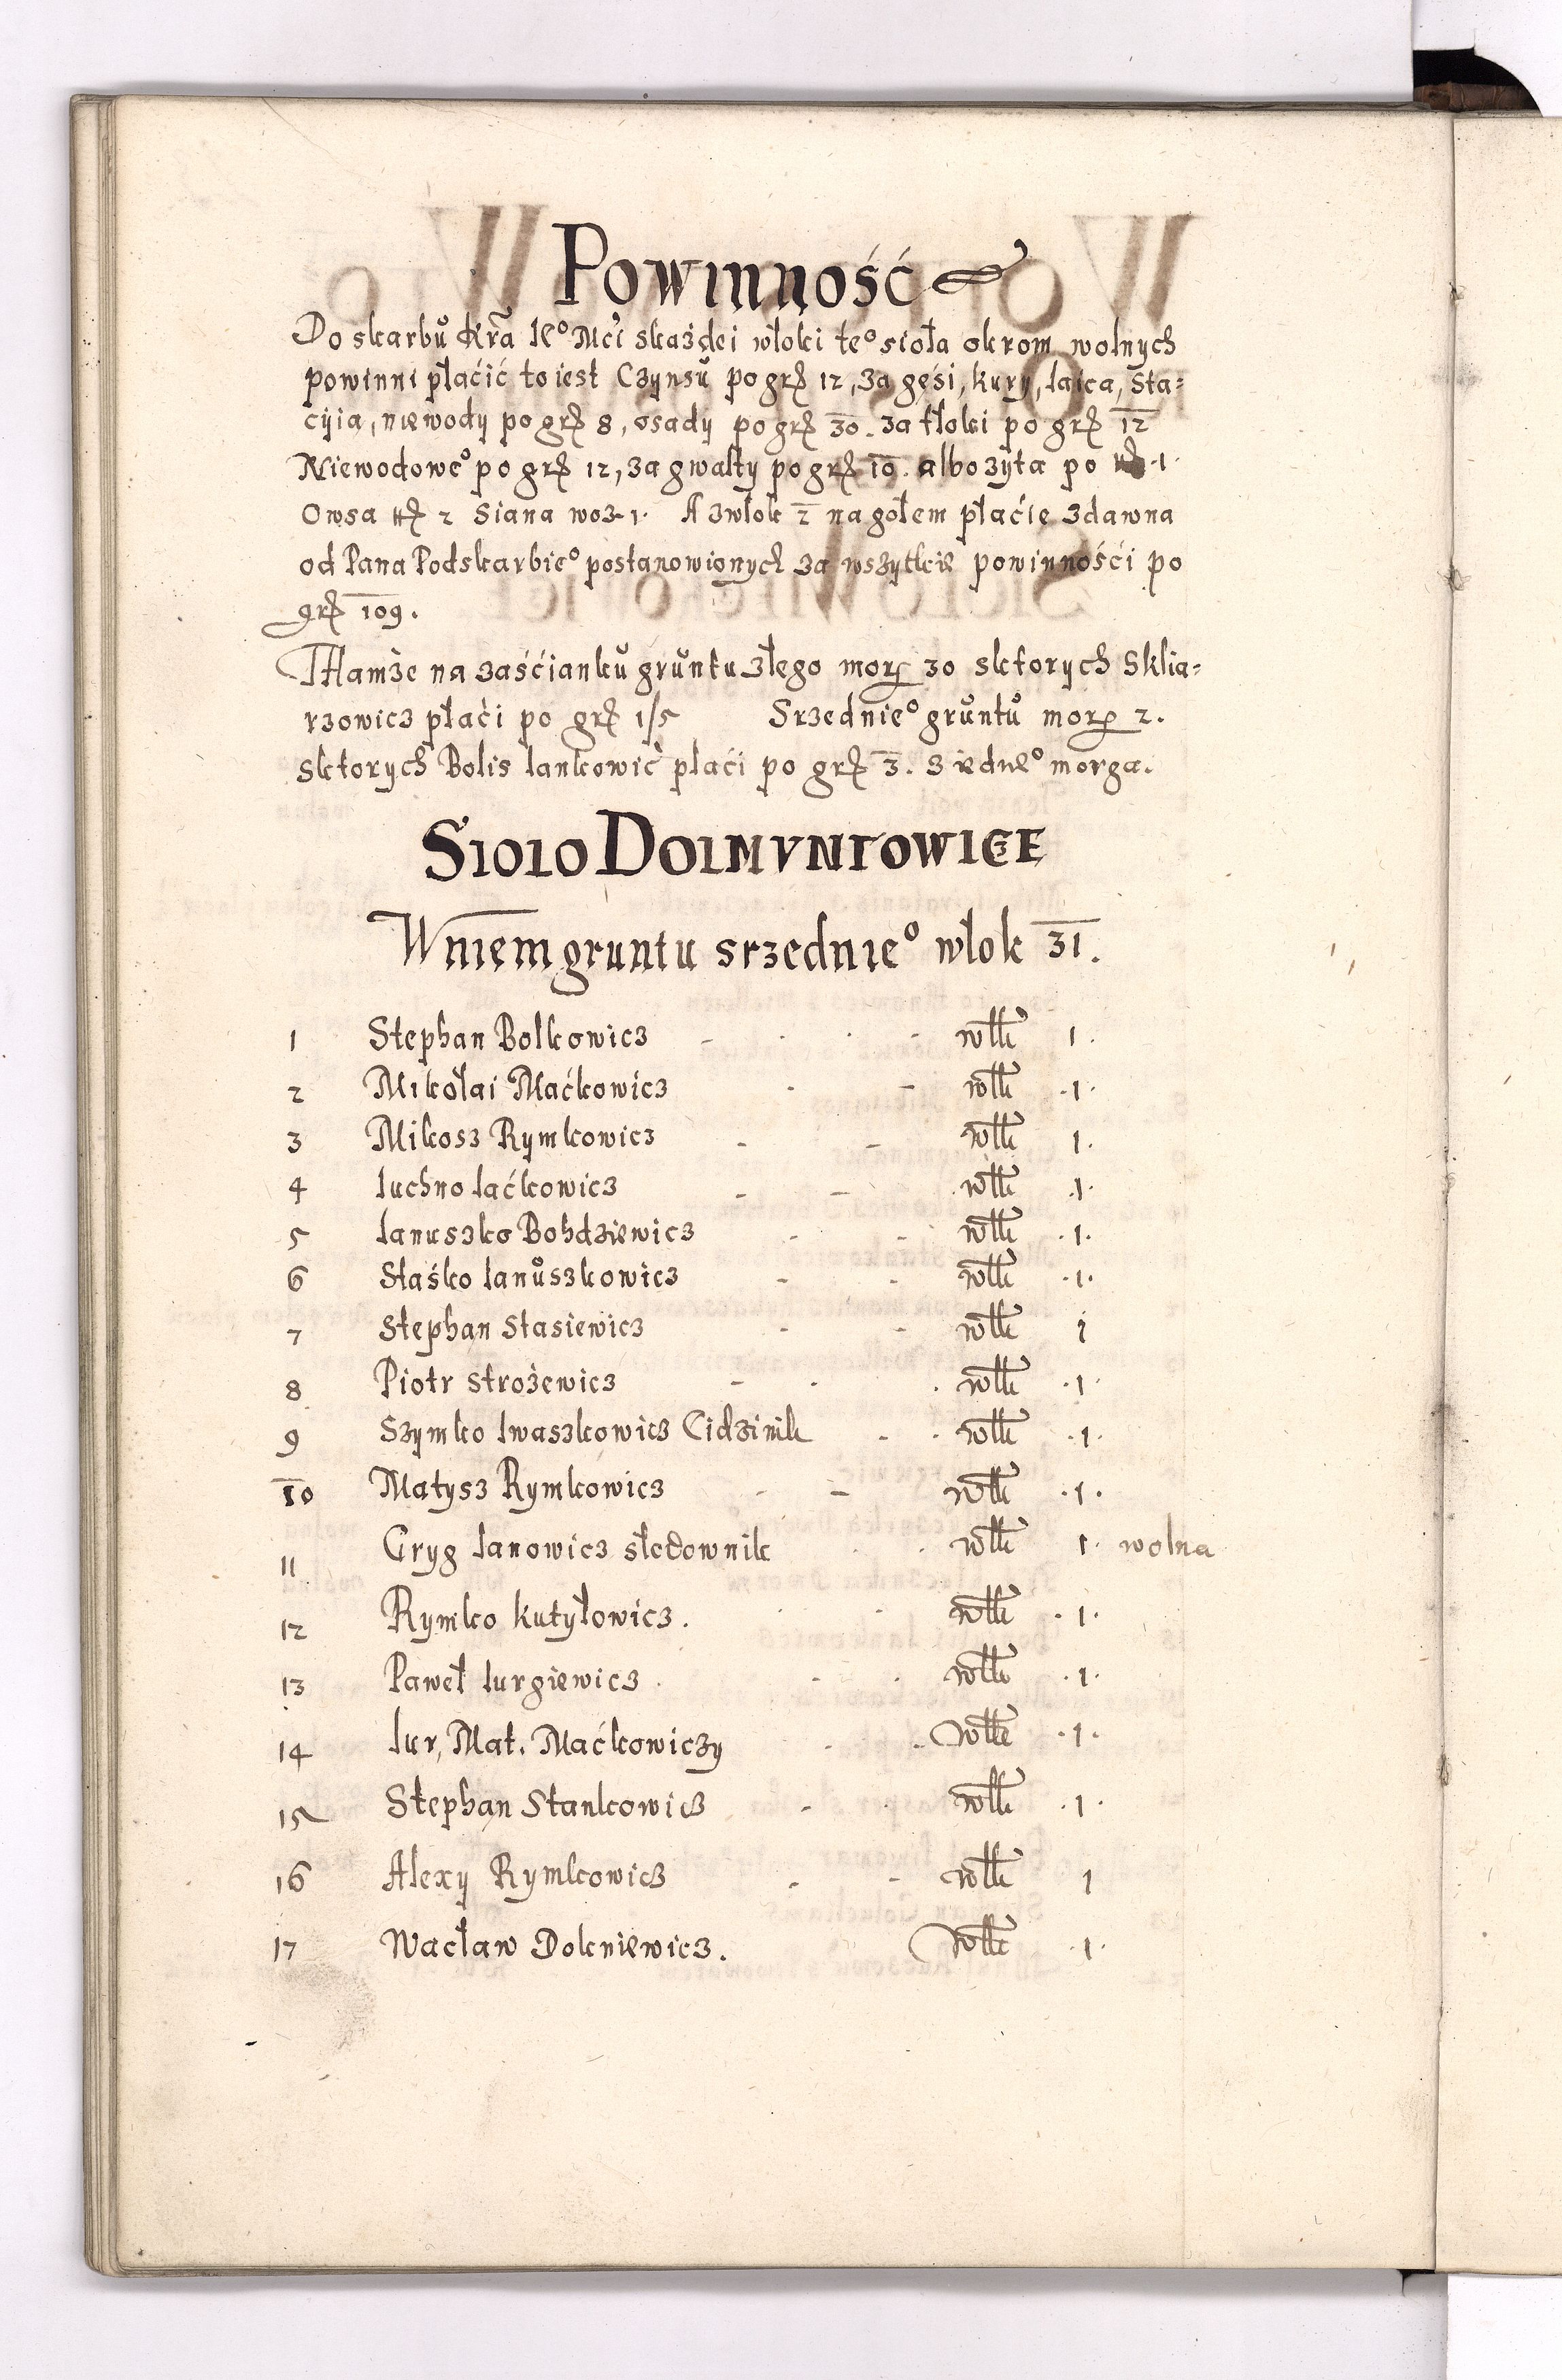 Powinność
Do skarbů Kr̃a Ieº Mći skażdei włoki teº sioła okrom wolnych
powinni płaćić to iest Czynsů po grß 12, Za gęśi, kury, Iaica, Sta=
cyia, niewody po grß 8, osady po grß 30. za tłoki po grß 12
Niewodoweº po grß 12, za gwałty po grß 10. albo zyta po 1.
Owsa 2 Siana woz 1. A zwłok 2 na gołem płaćie zdawna
od Pana Podskarbieº postanowionych za wszytkie powinnośći po
grß 109.
Thamże na zaśćianků grůntu złego morg 30 sktorych Sklia=
rzowicz płaći po grß 1/5 Srzednieº grůntů morg 2.
sktorych Bolis Iankowić płaći po grß 3. z iedneº morga.
SIOLO DOIMVNTOWICE
W niem gruntu srzednieº włok 31.
1 Stephan Bolkowicz - włk 1.
2 Mikołai Maćkowicz - włk 1.
3 Mikosz Rymkowicz - włk 1.
4 Iuchno Iaćkowicz - włk 1.
5 Ianuszko Bohdziewicz - włk 1.
6 Staśko Ianůszkowicz - włk 1.
7 Stephan Stasiewicz - włk 1
8 Piotr Strożewicz - włk 1
9 Szymko Iwaszkowicz Cidzinik - włk 1.
10 Matysz Rymkowicz - włk 1.
11 Gryg Ianowicz słedownik włk 1. wolna
12 Rymko Kutyłowicz. włk 1.
13 Paweł Iurgiewicz. włk 1.
14 Iur, Mat. Maćkowiczy włk 1.
15 Stephan Stankowicz włk 1.
16 Alexy Rymkowicz - włk 1
17 Wacław Dokniewicz. Włk 1.